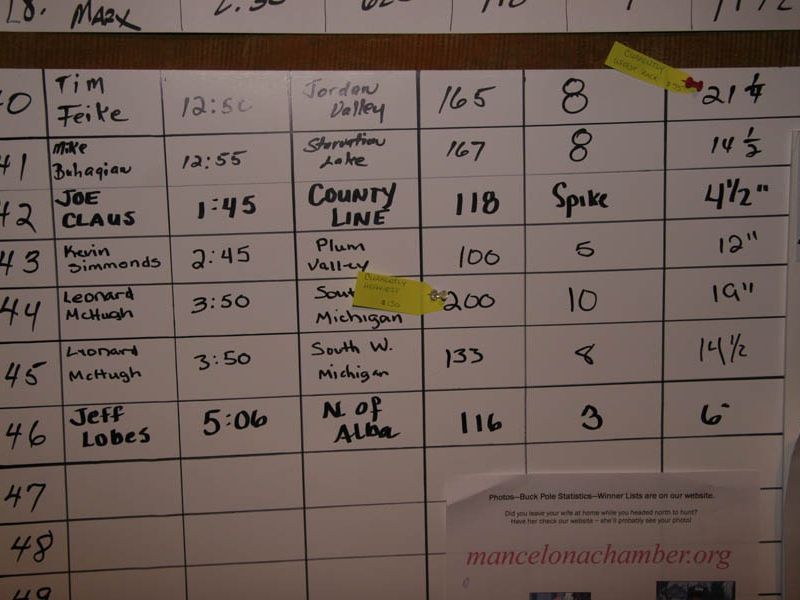 28. MARX
40 Tim Feike 12:50 Jordan Valley 165 8 21 1/4
41 Mike Buhagiar 12:55 Starvation Lake 167 8 14 1/2
42 JOE CLAUS 1:45 COUNTY LINE 118 Spike 4 1/2"
43 Kevin Simmonds 2:45 Plum Valley 100 5 12"
44 Leonard McHugh 3:50 Michigan 200 10 19"
45 Leonard McHugh 3:50 South W. Michigan 133 8 14 1/2
46 Jeff Lobes 5:06 N. of Alba 116 3 6"
47
48
49
CURRENTLY
CURRENTLY
HEAVIEST
$150
Photos—Buck Pole Statistics—Winner Lists are on our website.
Did you leave your wife at home while you headed north to hunt?
Have her check our website – she'll probably see your photo!
mancelonachamber.org